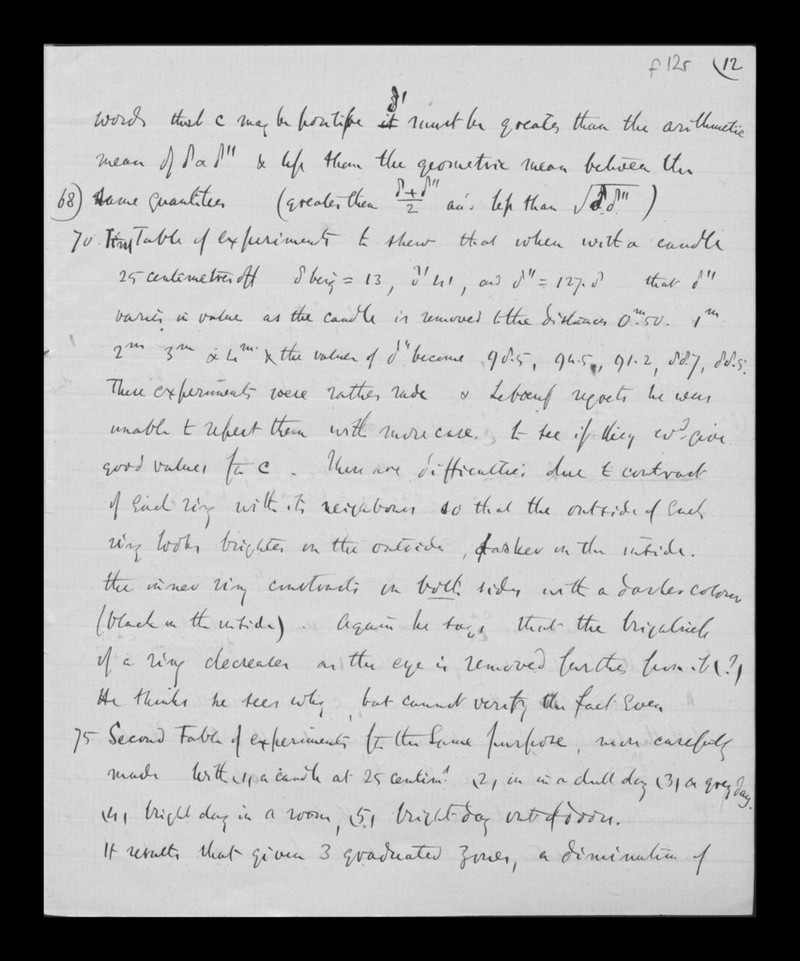 f 12r (12
words that c may be positive δ' must be greater than the arithmetic
mean of δ & δ'' & less than the geometric mean between the
68) same quantities (greater than δ+δ''/2 and less than √δ.δ'')
70. Table of experiments to shew that when with a candle
25 centimetres off δ being = 13, δ' 41, and δ'' = 127.8 that δ''
varies in value as the candle is removed to the distances 0.m50. 1m
2m 3m & 4m. & the values of δ'' become 98.5, 94.5, 91.2, 88.7, 88.5.
These experiments were rather rude & Lebœuf regrets he was
unable to repeat them with more care. to see if they wd give
good values for c. There are difficulties due to contrast
of each ring with its neighbours so that the outside of each
ring looks brighter on the outside, darker on the inside.
the inner ring contrasts on both sides with a darker colour
(black on the inside). Again he says that the brightness
of a ring decreases as the eye is removed further from it (?)
He thinks he sees why, but cannot verify the fact even
75 Second Table of experiments for the same purpose, more carefully
made with (1) a candle at 25 centims (2) in a dull day (3) a grey day.
(4) bright day in a room, (5) bright day out of doors.
It results that given 3 graduated zones, a diminution of